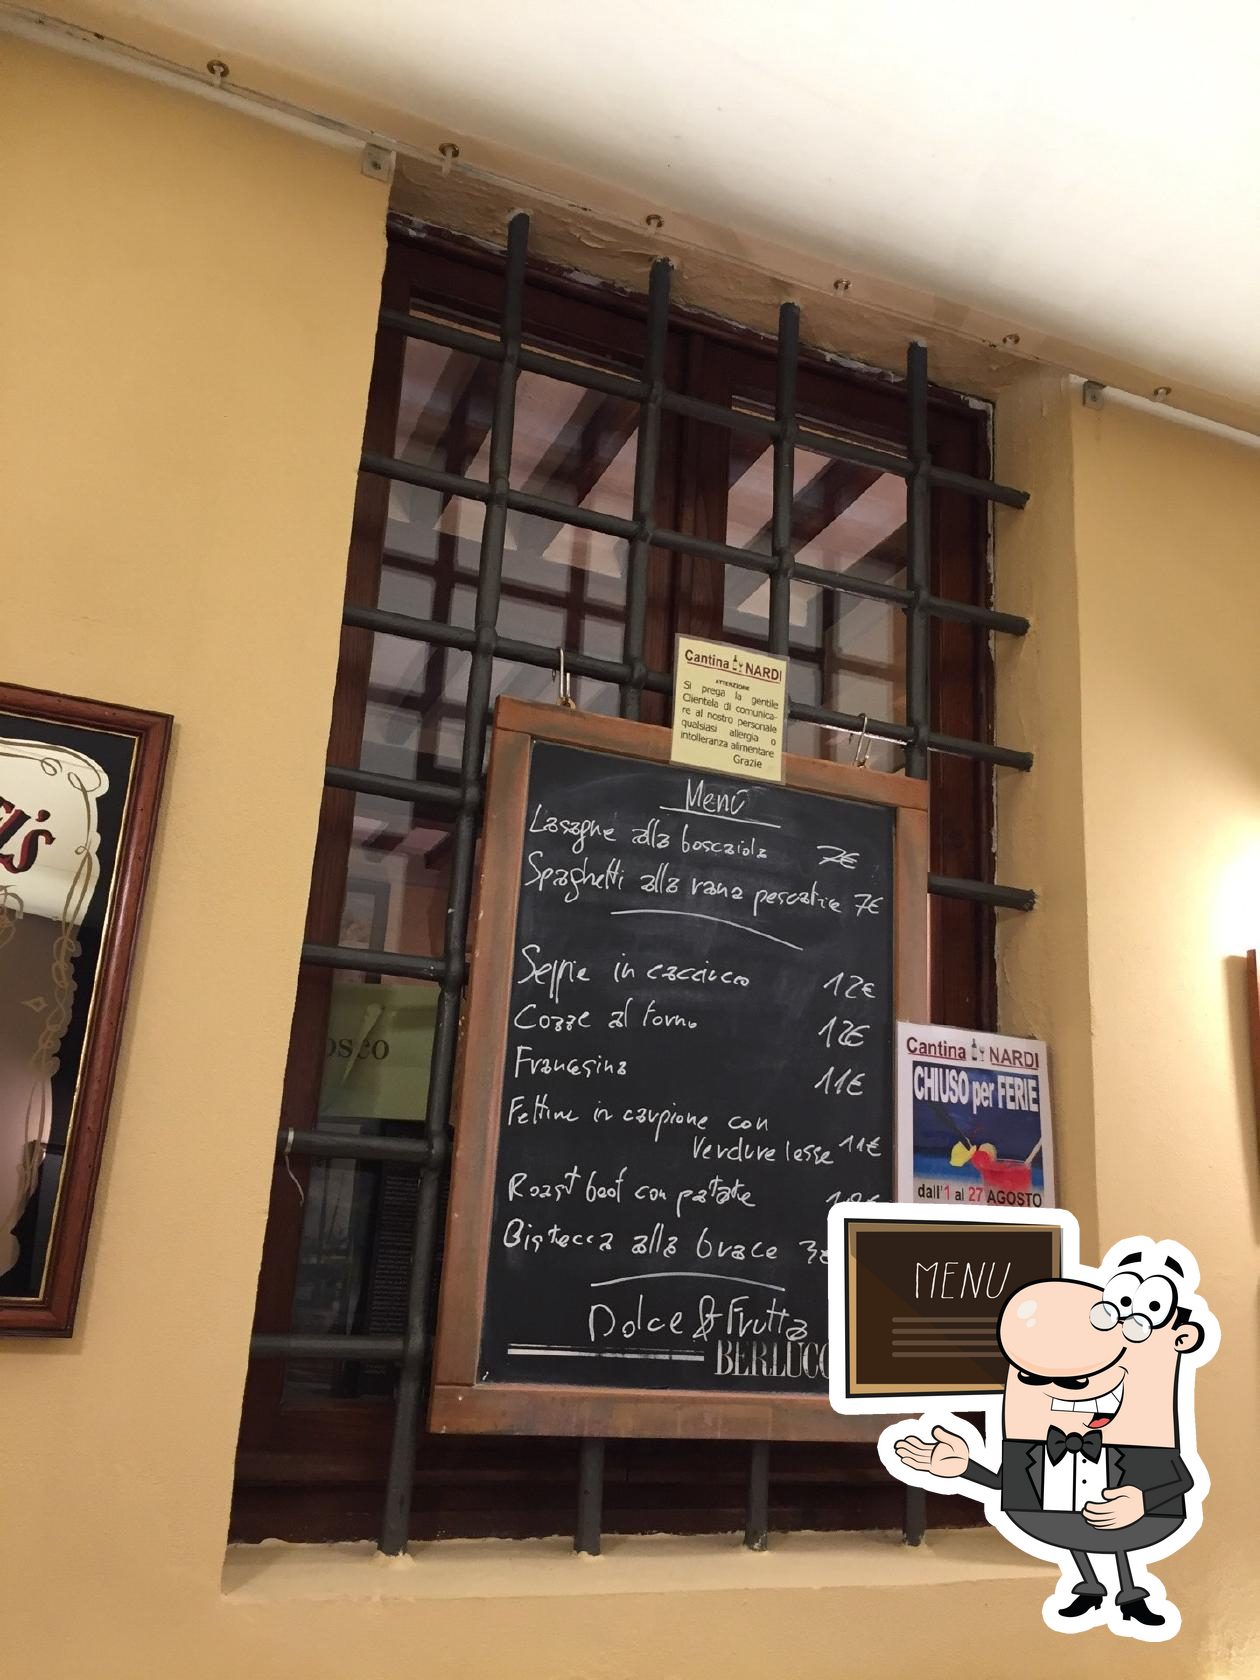 Cantina NARDI
ATTENZIONE
Si prega la gentile
Clientela di comunica-
re al nostro personale
qualsiasi allergia o
intolleranza alimentare
Grazie
Menú
Lasagne alla boscaiola 7€
Spaghetti alla rana pescatrice 7€
Seppie in cacciucco 12€
Cozze al forno 12€
Francesina 11€
Fettine in carpione con
Verdure lesse 11€
Roast beef con patate
Bistecca alla brace
Dolce & Frutta
BERLUCC
Cantina NARDI
CHIUSO per FERIE
dall'1 al 27 AGOSTO
MENU
EL'S
osco